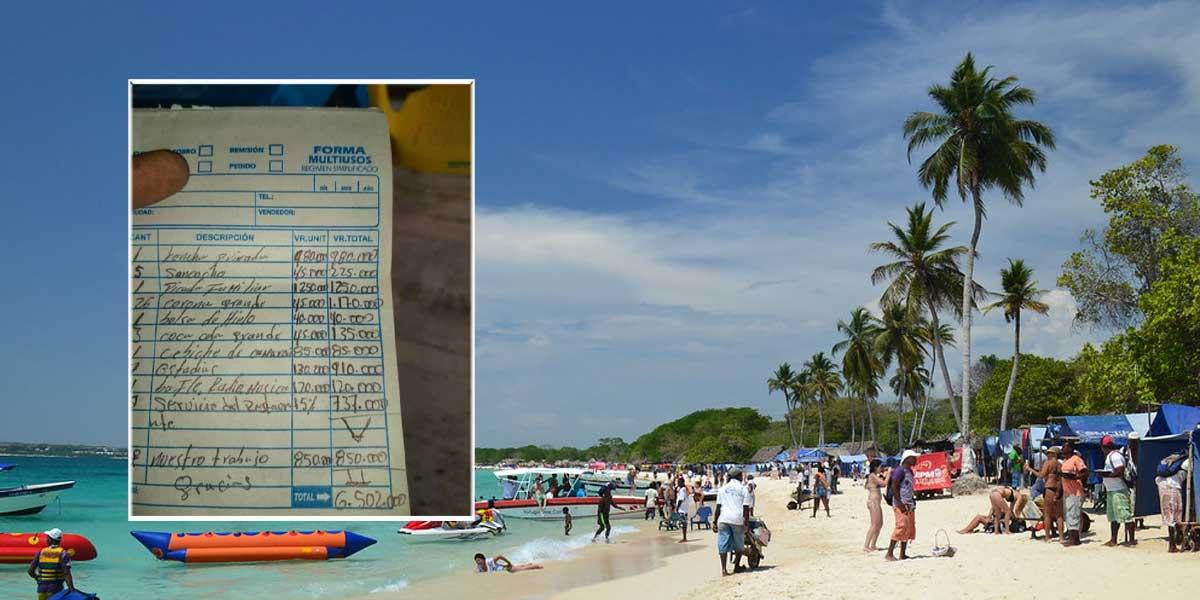 COBRO REMISIÓN FORMA
PEDIDO MULTIUSOS
REGIMEN SIMPLIFICADO
DIA MES AÑO
TEL.:
CIUDAD: VENDEDOR:
CANT DESCRIPCIÓN VR.UNIT VR.TOTAL
1 980.000 980.000
5 Sancocho 45.000 225.000
1 Picada Familiar 1250.000 1250.000
26 corona grande 45.000 1.170.000
1 bolsa de Hielo 40.000 40.000
3 coca cola grande 45.000 135.000
1 cebiche de 85.000 85.000
estadius 130.000 910.000
1 baile, Radio, Musica 120.000 120.000
Servicio del Restaura 15% 737.000
nte
nuestro trabajo 850.000 850.000
gracias
TOTAL 6.502.000